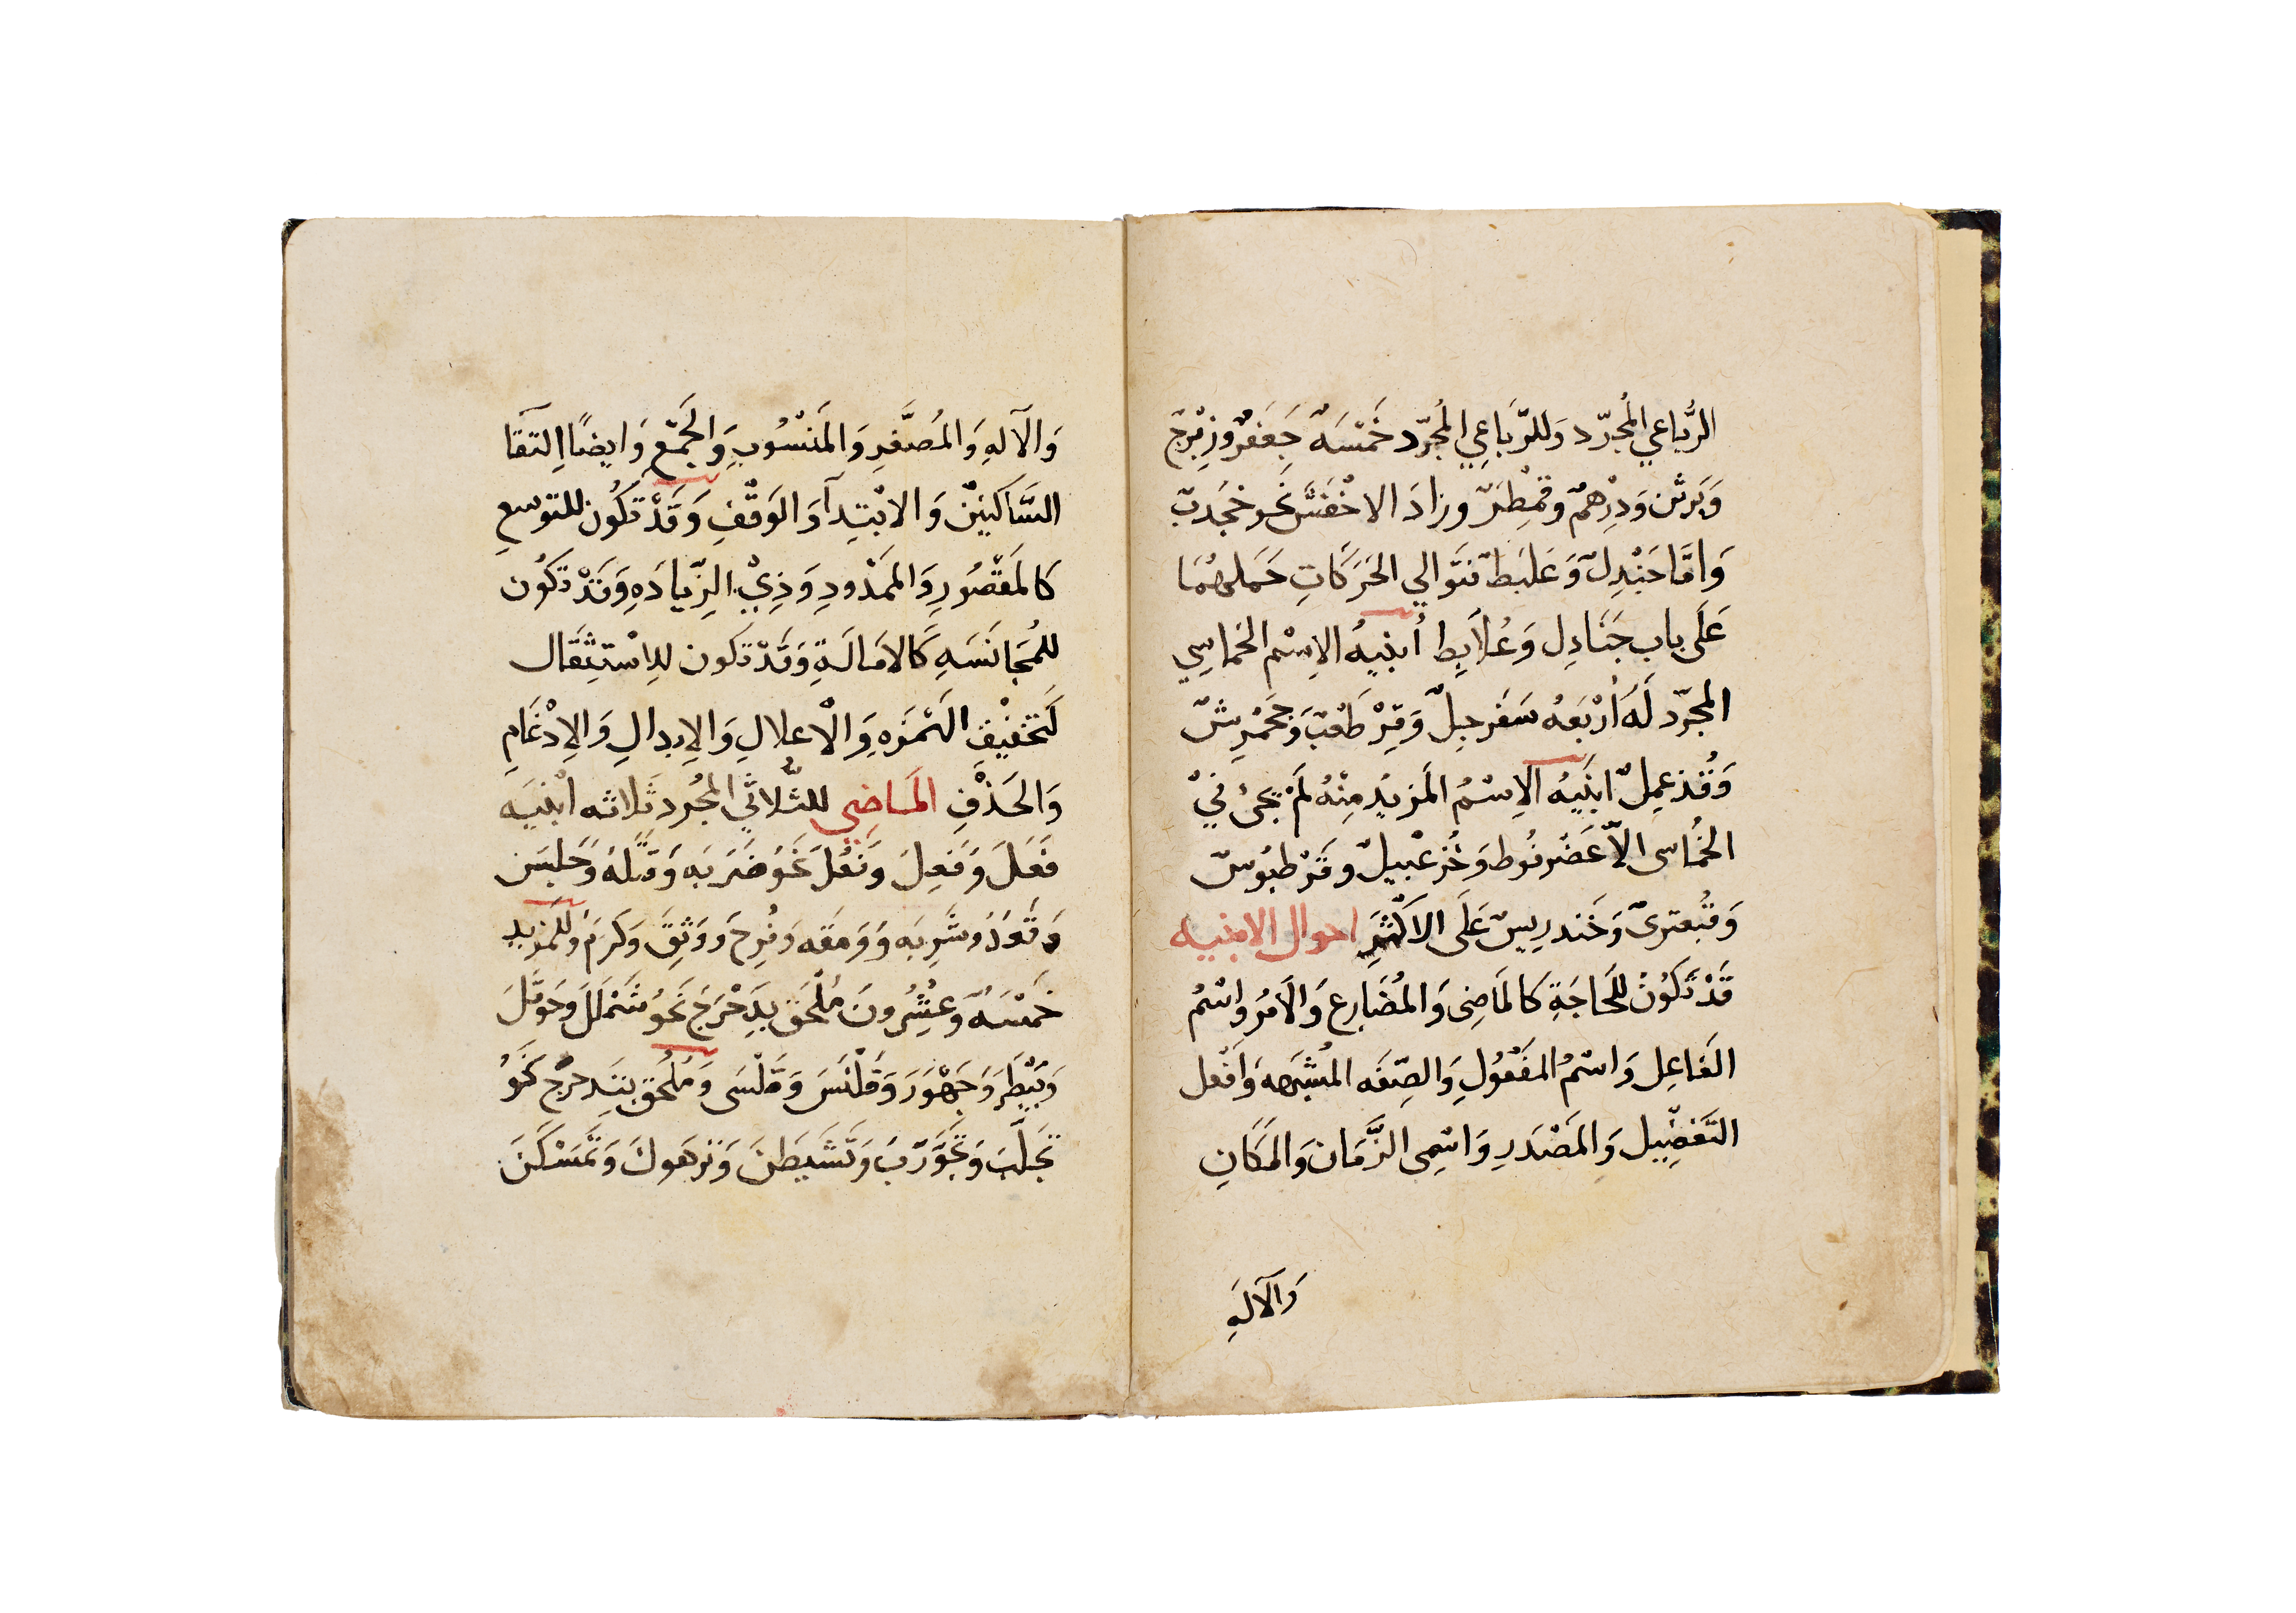 الرُّباعي المُجرّد وَللرّبَاعِي المُجرّد خَمْسَهٌ جَعَفرٌ وزِبْرَجٌ
وَبَرثن وَدِرْهمٌ وقمْطِرٌ وزادَ الاخْفَشُ نحو خجدبٌ
وَامَّا جَنْدِلٌ وَعَلَبَطٌ فَتَوالي الحَرَكَاتِ حَملهُمَا
عَلَى باب جَنَادِل وَعُلاَبِطِ أبنيهُ الاِسْم الخماسِي
المجرّد لَهُ أرْبَعهُ سَفَرجلٌ وَقِرْطَعْبٌ وَجَحْمَرِشٌ
وَقُذعمِلٌ ابنَيهُ الاِسْمُ المَزيدُ مِنْهُ لَمْ يَجئ فيْ
الخُماسى الاّ عَضْرفُوط وَخُزعْبيلٌ وقَرْطبُوسٌ
وَقبُعترىً وَخَندرِيسٌ عَلَى الاكْثَرِ احوال الابنيه
قَدْ تَكوُنُ لِلْحَاجَةِ كالمَاضِى وَالمُضَارِع وَالاَمْر وَاسْمُ
الفَاعِل وَاسْمُ المفْعُولِ وَالصِّفَه المُشبَهه وَافْعل
التَّفضِيل وَالمَصْدَرِ وَاسْمِى الزَّمَان وَالمَكَانِ
وَالآلَهِ
وَالآلهِ وَالمُصَغَّرِ وَالمَنسُوبِ وَالجَمْعِ وَايضًا اِلتقَا
السَّاكنيْن وَالابْتِدآ وَالوَقْفِ وَقَدْ تكُون للتوسعِ
كالمَقْصُورِ وَالمَمْدُودِ وَذِيْ الزّيادَهِ وَقَدْ تَكُون
للمُجَانَسَهِ كَالامَالَةِ وَقَدْ تكَون للِاسْتِثِقَال
كَتَخفيْفِ الهَمْزَهِ وَالْاعلالِ وَالاِبدالِ وَالاِدْغَامِ
وَالحَذْفِ المَاضِي للثّلاثي المجُرد ثَلاثه ابْنيَه
فَعَلَ وَفَعِلَ وَفَعُلَ نحَوُ ضَرَبَه وَقَتَلهُ وَجَلَسَ
وَقَعَدَ وَشَرِبَه وَوَمَقَه وَفَرِحَ وَوَثِقَ وَكَرُمَ وَللمَزيدِ
خَمْسَهٌ وَعِشْرُونَ مُلْحَقٌ بِدَحْرَجَ نَحوُ شَمْلَلَ وَحَوْقَلَ
وَبَيْطَرَ وَجَهْوَرَ وَقَلْنَسَ وَقَلْسَى وَمُلْحَقٌ بتَدحرَجَ نحَوُ
تَجَلْبَبَ وَتَجَوْرَبَ وَتَشَيطَنَ وَتَرَهْوكَ وَتَمَسْكَنَ